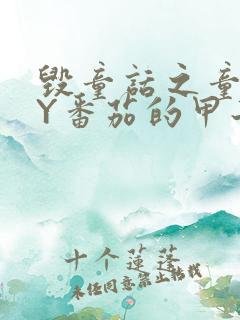 毁童话之童
Y番茄的甲
十个莲蓬
未经同意禁止转载